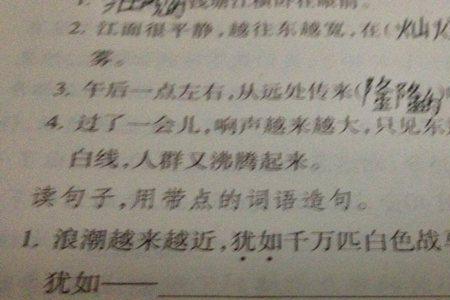 钱塘江横卧在眼前。
2. 江面很平静,越往东越宽,在(灿灿
雾。
3. 午后一点左右,从远处传来(隆隆
4. 过了一会儿,响声越来越大,只见东
白线,人群又沸腾起来。
读句子,用带点的词语造句。
1. 浪潮越来越近,犹如千万匹白色战
犹如——